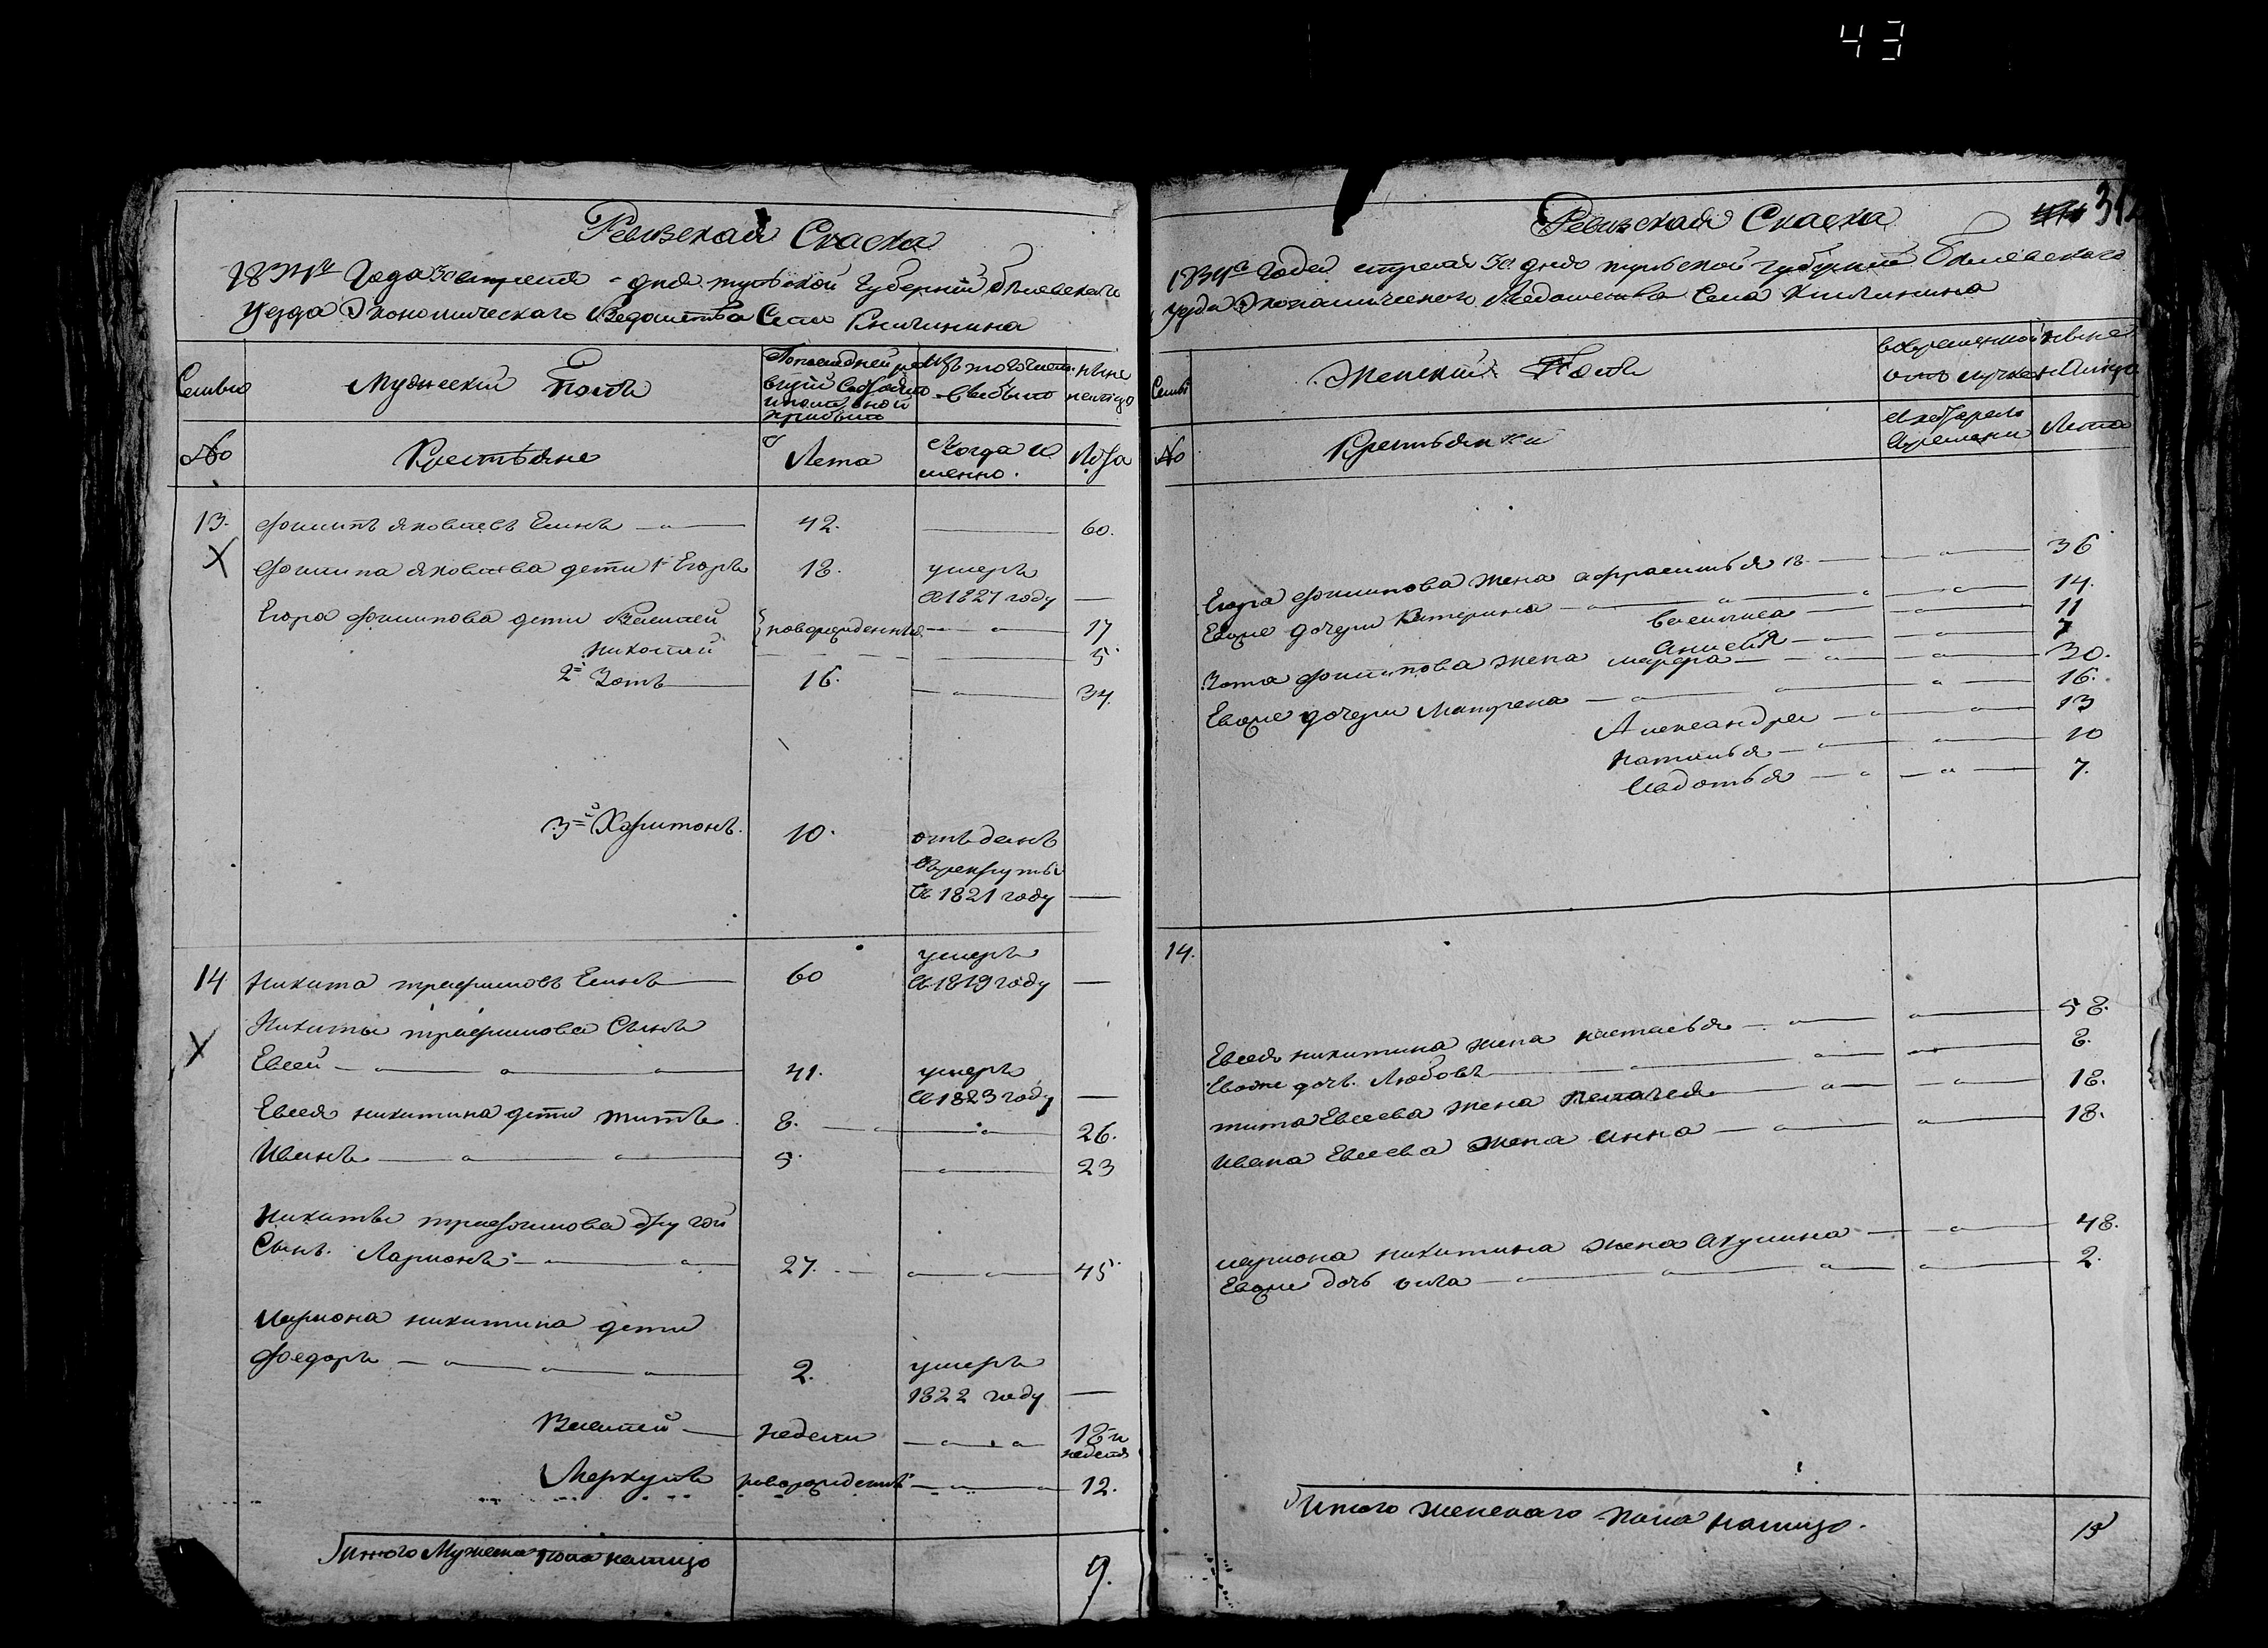 43
Ревизская Сказка
1834го Года 30 апреля - дня тульской Губерний бѣлевскаго
уезда Экономическаго Ведомства Села Кничинина
Семьи
Мужескій Полъ
Попоследней ре
визіи состояло
и после оной
прибыло
Изъ того числа
выбыло
ныне
налицо
№
Крестьяне
Лета
Когда и
менно.
Лета
13. Филипъ яковлевъ Елинъ 42. 60.
Филипа яковлева дети 1й Егоръ 18. умеръ
в 1827 году —
Егора филипова дети Василей новорожденные 17
николай 5
2й Зотъ 16. 34.
3й Харитонъ. 10. отъданъ
в рекруты
в 1821 году —
14 Никита трафимовъ Елинъ 60 умеръ
в 1819 году —
Никиты трафимова Сынъ
Евсей 41. умеръ
в 1823 году —
Евсея никитина дети титъ 8. 26.
Иванъ 5. 23
Никиты трафимова другой
Сынъ. Ларионъ 27. 45
Лариона никитина дети
Федоръ 2. умеръ
1822 году —
Василей недели 18 и
неделя
Меркулъ новорожденъ 12.
Итого Мужеска пола налицо 9.
Ревизская Сказка
1834го Года апреля 30 дня тульской губерний бѣлевскаго
уезда Экономическаго Ведомства Села Кничинина
Семьи
Женский Полъ
вовременной
отлучке
ныне
налицо
№
Крестьянки
с которого
времени
Лета
Егора филипова жена афрасинья 36
Евоже дочери Катерина 14.
василиса 11
анисья 7
Зота филипова жена марфа 30.
Евоже дочери Матрена 16.
Александра 13
наталья 10
Авдотья 7.
14.
Евсея никитина жена настасья 58.
Евоже дочь. Любовь 8.
тита Евсеева жена пелагея 18.
Ивана Евсеева жена анна 18.
лариона никитина жена Акулина 48.
Евоже дочь 2.
Итого женскаго пола налицо. 15